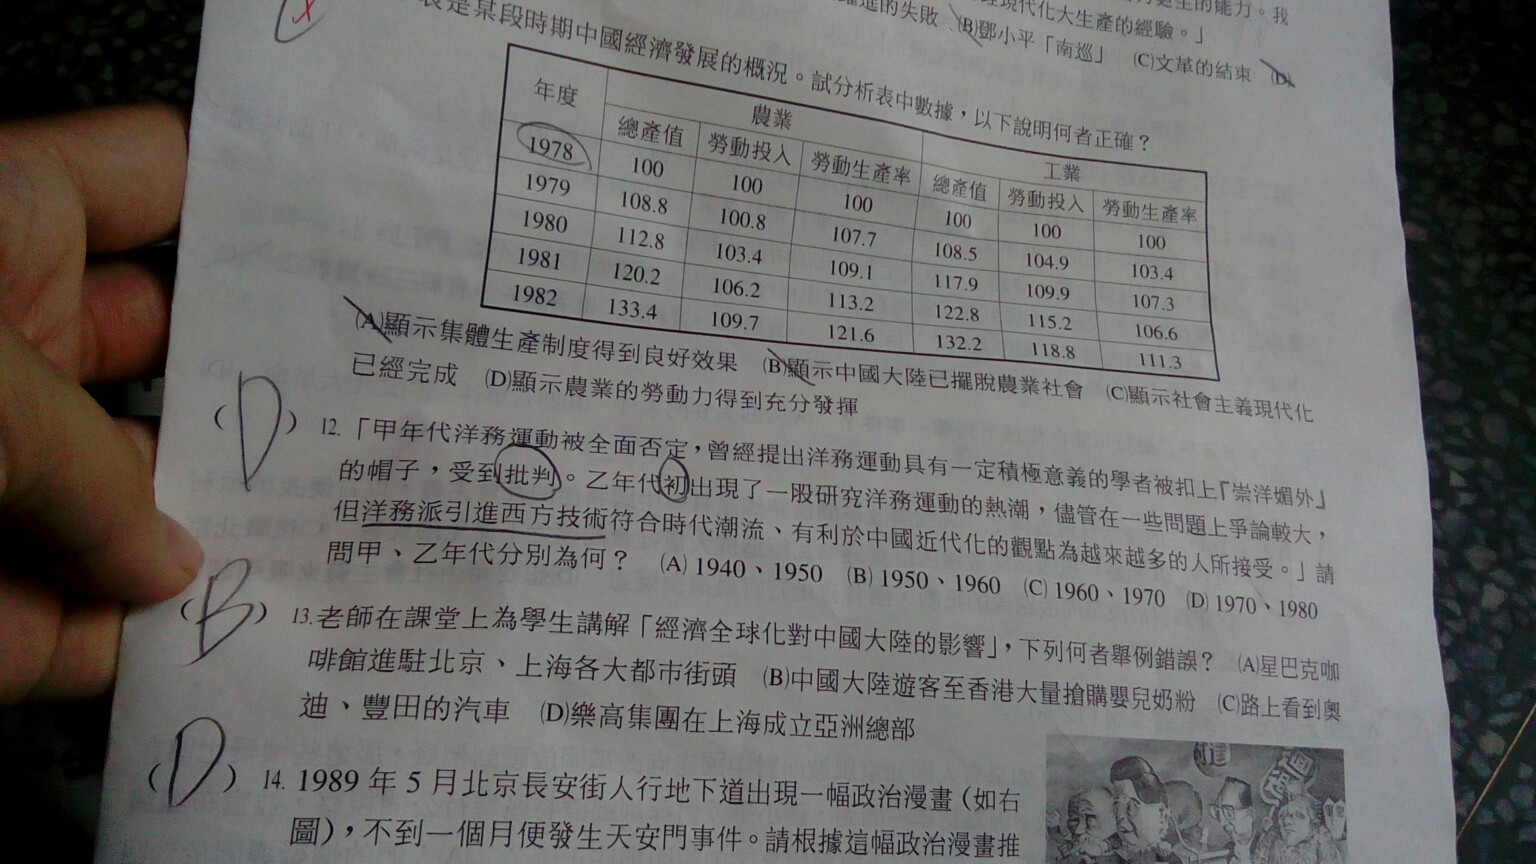 更生的能力。我
現代化大生產的經驗。」
進的失敗 (B)鄧小平「南巡」 (C)文革的結束 (D)
表是某段時期中國經濟發展的概況。試分析表中數據，以下說明何者正確？
年度 農業 工業
總產值 勞動投入 勞動生產率 總產值 勞動投入 勞動生產率
1978 100 100 100 100 100 100
1979 108.8 100.8 107.7 108.5 104.9 103.4
1980 112.8 103.4 109.1 117.9 109.9 107.3
1981 120.2 106.2 113.2 122.8 115.2 106.6
1982 133.4 109.7 121.6 132.2 118.8 111.3
(A)顯示集體生產制度得到良好效果 (B)顯示中國大陸已擺脫農業社會 (C)顯示社會主義現代化
已經完成 (D)顯示農業的勞動力得到充分發揮
(D) 12.「甲年代洋務運動被全面否定，曾經提出洋務運動具有一定積極意義的學者被扣上『崇洋媚外』
的帽子，受到批判。乙年代初出現了一股研究洋務運動的熱潮，儘管在一些問題上爭論較大，
但洋務派引進西方技術符合時代潮流、有利於中國近代化的觀點為越來越多的人所接受。」請
問甲、乙年代分別為何？ (A) 1940、1950 (B) 1950、1960 (C) 1960、1970 (D) 1970、1980
(B) 13.老師在課堂上為學生講解「經濟全球化對中國大陸的影響」，下列何者舉例錯誤？ (A)星巴克咖
啡館進駐北京、上海各大都市街頭 (B)中國大陸遊客至香港大量搶購嬰兒奶粉 (C)路上看到奧
迪、豐田的汽車 (D)樂高集團在上海成立亞洲總部
(D) 14. 1989 年 5 月北京長安街人行地下道出現一幅政治漫畫（如右
圖），不到一個月便發生天安門事件。請根據這幅政治漫畫推